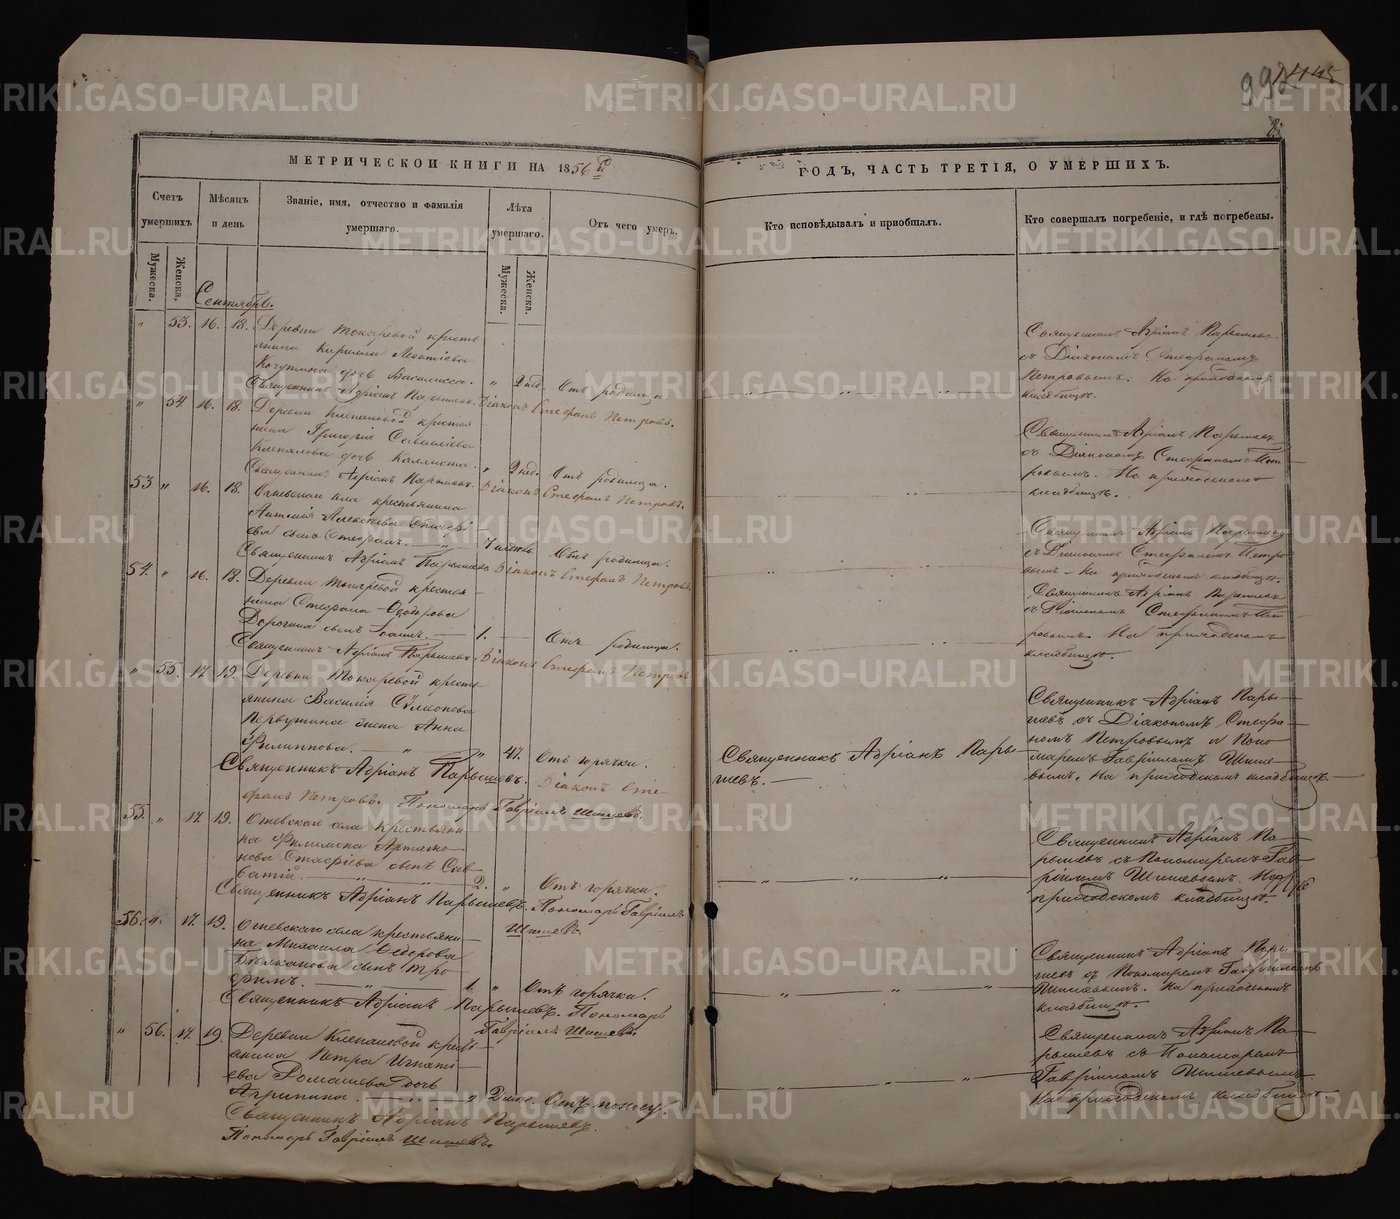 МЕТРИЧЕСКОЙ КНИГИ НА 1856й
ГОДЪ, ЧАСТЬ ТРЕТІЯ, О УМЕРШИХЪ.
Счетъ умершихъ
Мѣсяцъ и день
Званіе, имя, отчество и фамилія умершаго.
Лѣта умершаго.
Отъ чего умеръ.
Кто исповѣдывалъ и пріобщалъ.
Кто совершалъ погребеніе, и гдѣ погребены.
Мужеска.
Женска.
Мужеска.
Женска.
Сентябрь.
" 53. 16. 18. Деревни Токаревой кресть
янина Кирилла Леонтіева
дочь Василисса. " 2 нед. Отъ родимца.
Священникъ Адріанъ Парышевъ. Діаконъ Стефанъ Петровъ.
Священникъ Адріанъ Парышевъ
съ Діакономъ Стефаномъ
Петровымъ. На приходскомъ
кладбищѣ.
" 54 16. 18. Деревни Клепаловой крестья
нина Григорія
дочь Каллиста. " 2 нед. Отъ родимца.
Священникъ Адріанъ Парышевъ. Діаконъ Стефанъ Петровъ.
Священникъ Адріанъ Парышевъ
съ Діакономъ Стефаномъ Пет-
ровымъ. На приходскомъ
кладбищѣ.
53 " 16. 18. Огневскаго села крестьянина
Алексѣева
сынъ Стефанъ. Отъ родимца.
Священникъ Адріанъ Парышевъ Діаконъ Стефанъ Петровъ.
Священникъ Адріанъ Парышевъ
съ Діакономъ Стефаномъ Петро
вымъ. На приходскомъ кладбищѣ.
54. " 16. 18. Деревни Токаревой крестья
нина Стефана Ѳедорова
сынъ Іоаннъ. 1. Отъ родимца.
Священникъ Адріанъ Парышевъ. Діаконъ Стефанъ Петровъ
Священникъ Адріанъ Парышевъ
съ Діакономъ Стефаномъ Пет-
ровымъ. На приходскомъ
кладбищѣ.
" 55. 17 19. Деревни Токаревой кресть
янина Василія Сѵмеонова
Первушина жена Анна
Филиппова. " " 47. Отъ горячки.
Священникъ Адріанъ Парышевъ. Діаконъ Сте-
фанъ Петровъ. Пономарь Гавріилъ Шишевъ.
Священникъ Адріанъ Пары-
шевъ.
Священникъ Адріанъ Пары-
шевъ съ Діакономъ Стефа-
номъ Петровымъ и Поно-
маремъ Гавріиломъ Шише-
вымъ. На приходскомъ кладбищѣ
55. " 17. 19. Огневскаго села крестьяни-
на Филимона Артамо-
нова сынъ Сав-
ватій. 2. " Отъ горячки.
Священникъ Адріанъ Парышевъ. Пономарь Гавріилъ
Шишевъ.
Священникъ Адріанъ Па-
рышевъ съ Пономаремъ Гав-
ріиломъ Шишевымъ. На
приходскомъ кладбищѣ.
56. " 17. 19. Огневскаго села крестьяни-
на Михаила Ѳедорова
сынъ Тро
фимъ. 1. " Отъ горячки.
Священникъ Адріанъ Парышевъ. Пономарь
Гавріилъ Шишевъ.
Священникъ Адріанъ Пары-
шевъ съ Пономаремъ Гавріиломъ
Шишевымъ. На приходскомъ
кладбищѣ.
" 56. 17. 19. Деревни Клепаловой кресть-
янина Петра Игнаті-
ева Ромашева дочь
Агрипина. " Отъ поносу.
Священникъ Адріанъ Парышевъ.
Пономарь Гавріилъ Шишевъ.
Священникъ Адріанъ Па-
рышевъ съ Пономаремъ
Гавріиломъ Шишевымъ.
На приходскомъ кладбищѣ
METRIKI.GASO-URAL.RU